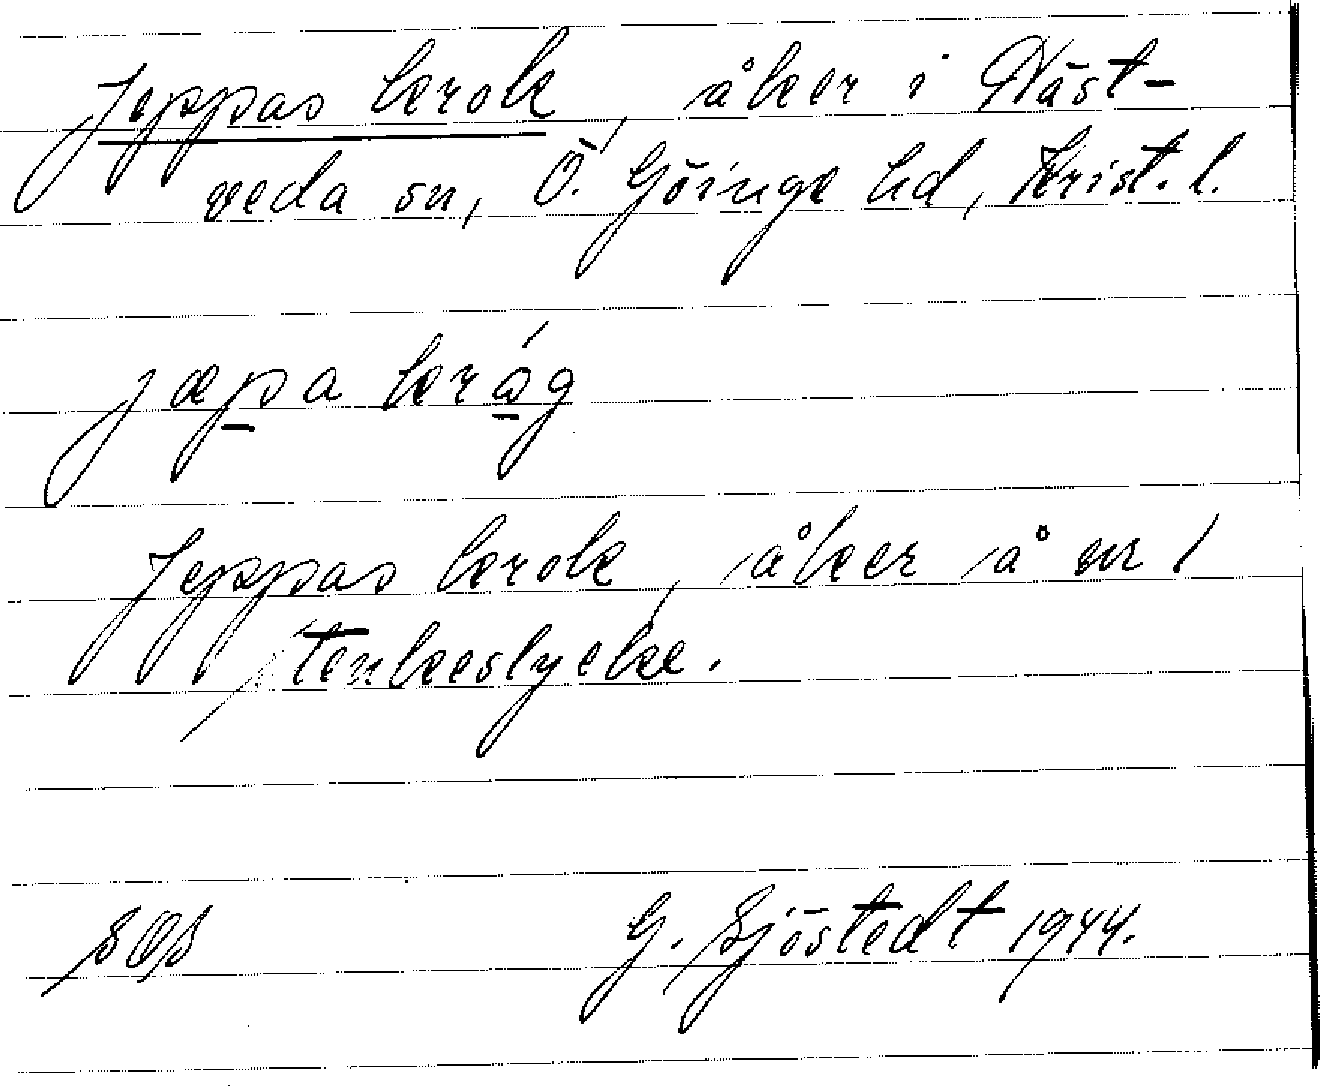 Jeppas krok, åker i Näst-
veda sn, Ö. Göinge hd, Krist. l.
jæpa kråg
Jeppas krok, åker å nr 1
Stenkeslycke.
G. Sjöstedt 1944.